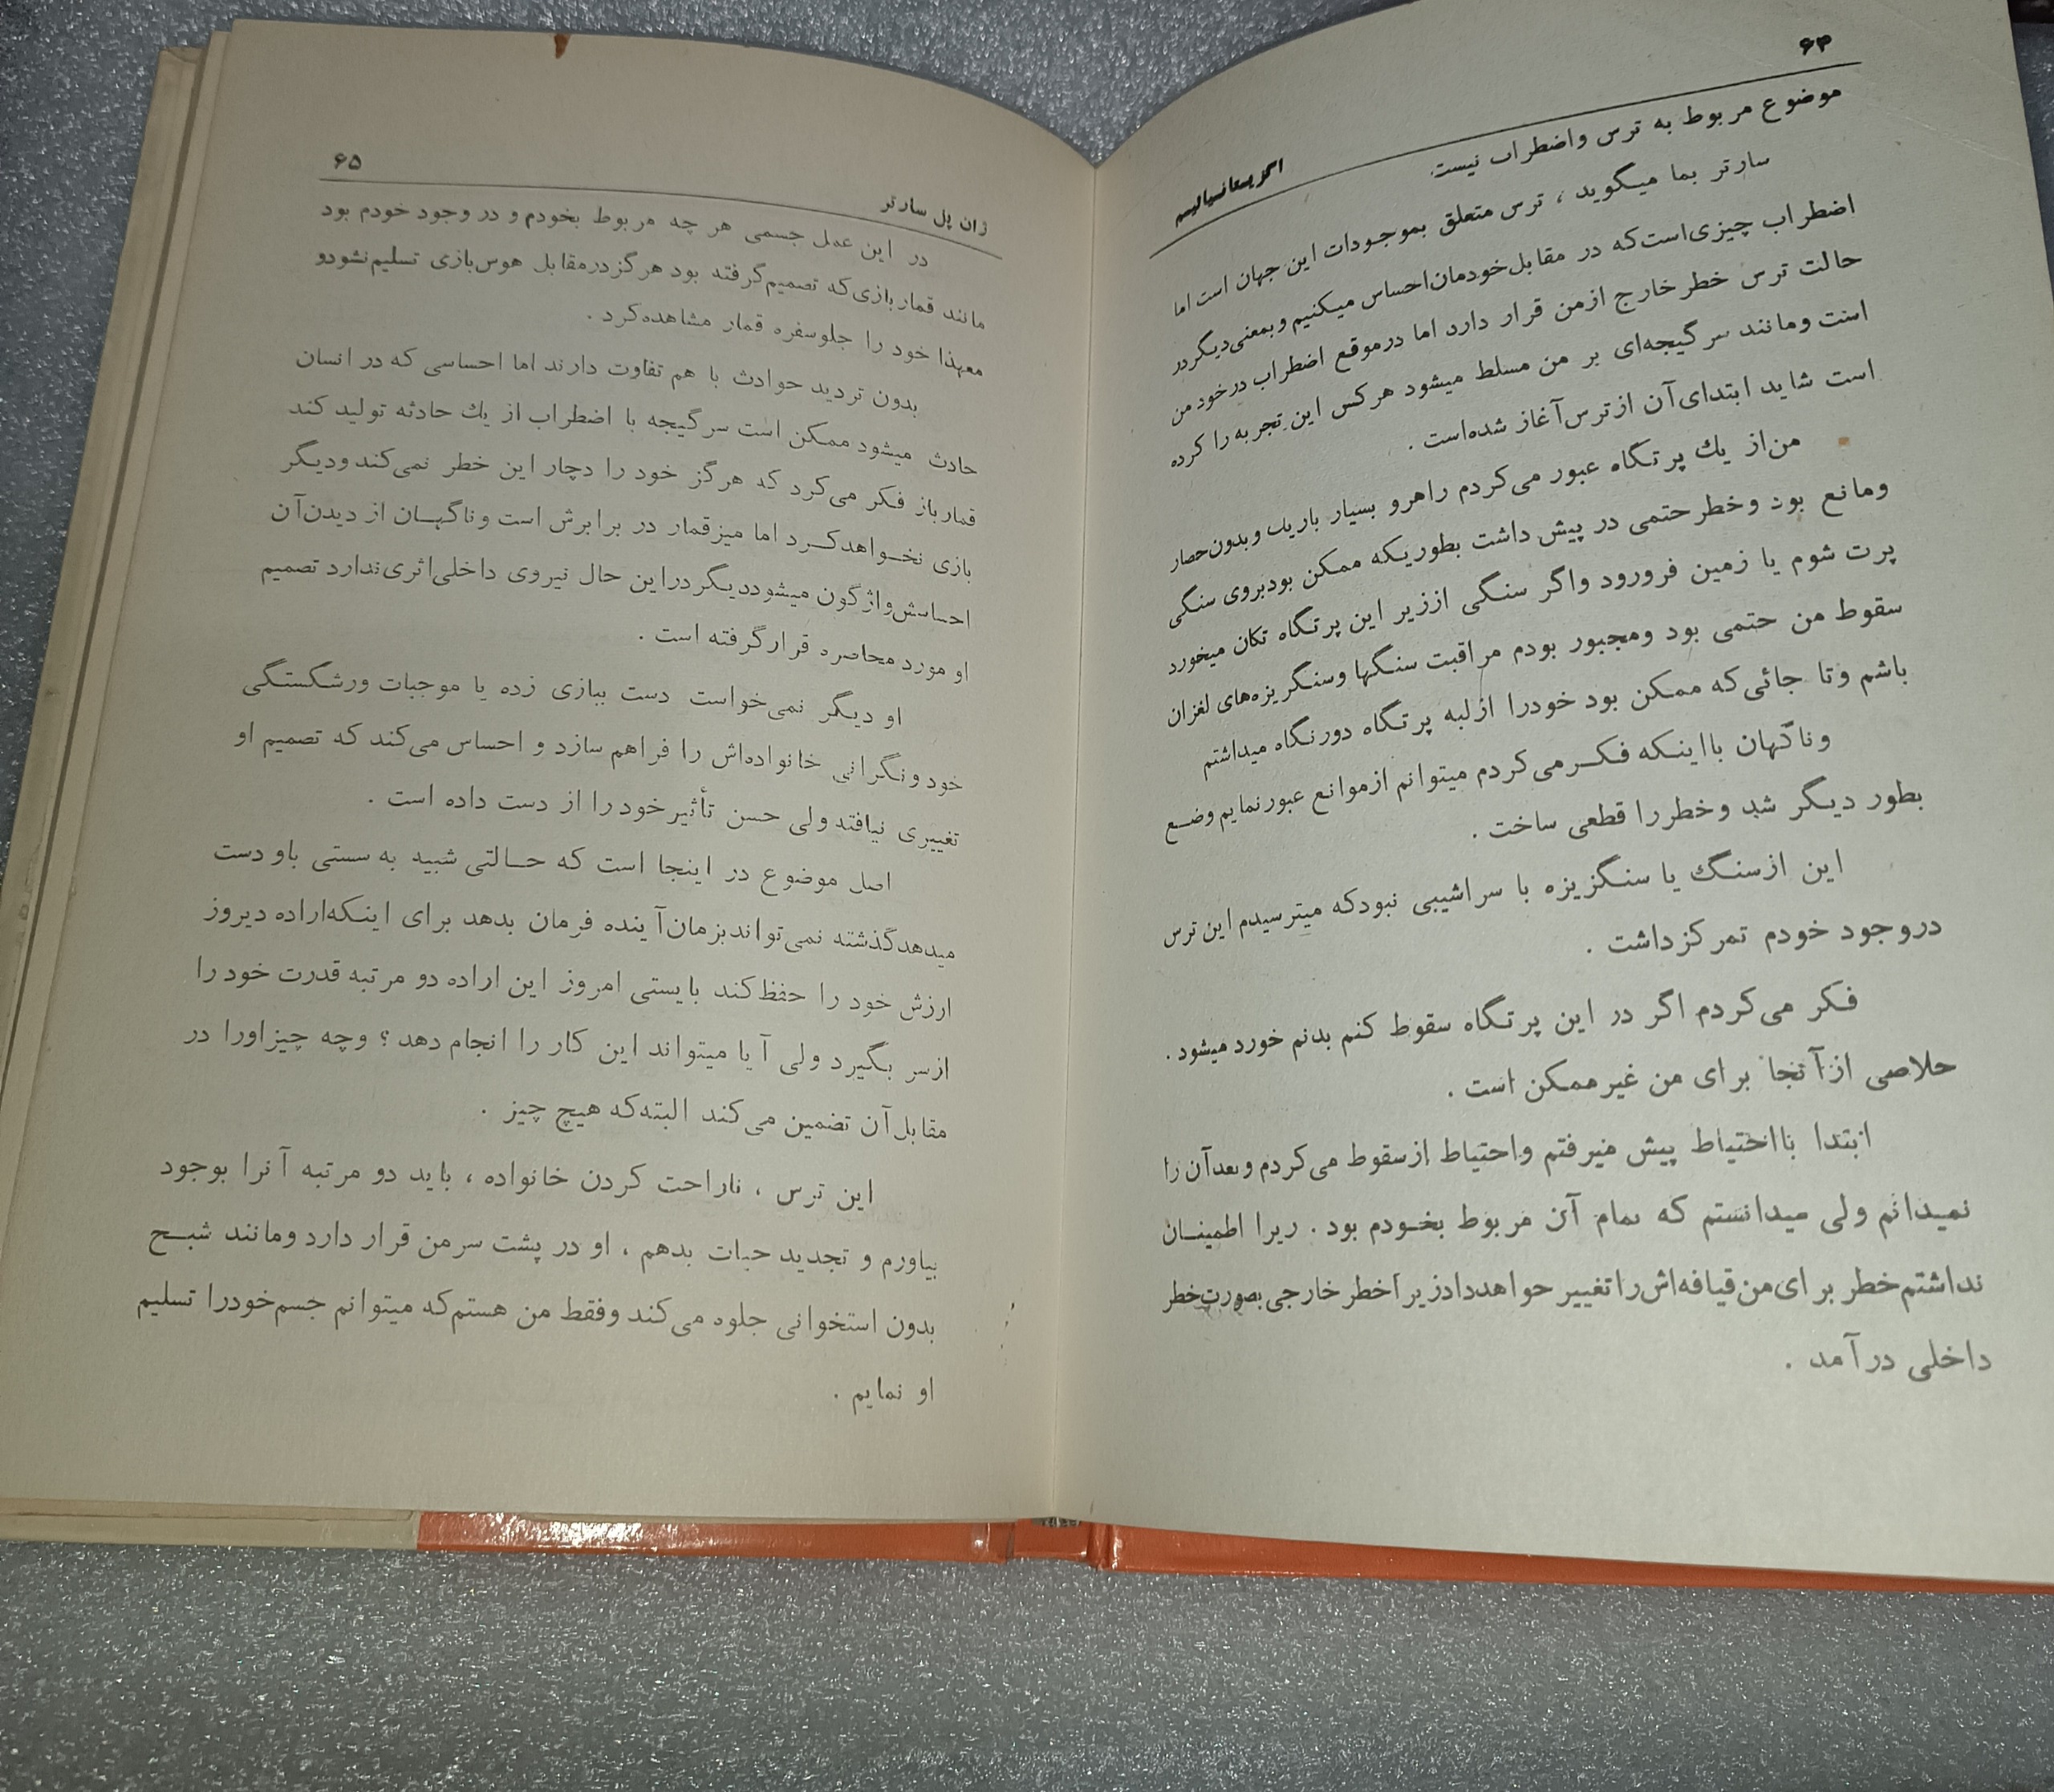 ۶۴
اگزیستانسیالیسم
موضوع مربوط به ترس واضطراب نیست.
سارتر بما میگوید ، ترس متعلق بموجودات این جهان است اما
اضطراب چیزی‌است‌که در مقابل‌خودمان‌احساس میکنیم وبمعنی‌دیگردر
حالت ترس خطرخارج ازمن قرار دارد اما درموقع اضطراب درخود من
است ومانند سرگیجه‌ای بر من مسلط میشود هرکس این تجربه را کرده
است شاید ابتدای‌آن ازترس‌آغاز شده‌است .
من‌از یك پرتگاه عبور می‌کردم راهرو بسیار باریك وبدون‌حصار
ومانع بود وخطرحتمی در پیش داشت بطوریکه ممکن بودبروی سنگی
پرت شوم یا زمین فرورود واگر سنگی اززیر این پرتگاه تکان میخورد
سقوط من حتمی بود ومجبور بودم مراقبت سنگها وسنگریزه‌های لغزان
باشم وتا جائی‌که ممکن بود خودرا ازلبه پرتگاه دورنگاه میداشتم
وناگهان بااینکه فکرمی‌کردم میتوانم ازموانع عبورنمایم وضع
بطور دیگر شد وخطررا قطعی ساخت .
این ازسنگ یا سنگزیزه با سراشیبی نبودکه میترسیدم این ترس
دروجود خودم تمرکزداشت .
فکر می‌کردم اگر در این پرتگاه سقوط کنم بدنم خورد میشود .
خلاصی ازآنجا برای من غیرممکن است .
ابتدا بااختیاط پیش میرفتم واحتیاط ازسقوط می‌کردم وبعدآن را
نمیدانم ولی میدانستم که تمام آن مربوط بخودم بود . زیرا اطمینان
نداشتم‌خطر برای‌من‌قیافه‌اش‌راتغییر خواهدداد‌زیرا‌خطر‌خارجی‌بصورت‌خطر
داخلی درآمد .
۶۵
ژان پل سارتر
در این عمل جسمی هر چه مربوط بخودم و در وجود خودم بود
مانند قماربازی‌که تصمیم‌گرفته بود هرگزدرمقابل هوس‌بازی تسلیم‌نشودو
معهذا خود را جلوسفره قمار مشاهده‌کرد .
بدون تردید حوادث با هم تفاوت دارند اما احساسی که در انسان
حادث میشود ممکن است سرگیجه با اضطراب از یك حادثه تولید کند
قمارباز فکر می‌کرد که هرگز خود را دچار این خطر نمی‌کند ودیگر
بازی نخواهدکرد اما میزقمار در برابرش است وناگهان از دیدن‌آن
احساسش‌واژگون میشوددیگردراین حال نیروی داخلی‌اثری‌ندارد تصمیم
او مورد محاصره قرارگرفته است .
او دیگر نمی‌خواست دست ببازی زده یا موجبات ورشکستگی
خود ونگرانی خانواده‌اش را فراهم سازد و احساس می‌کند که تصمیم او
تغییری نیافته ولی حسن تأثیرخود را از دست داده است .
اصل موضوع در اینجا است که حالتی شبیه به سستی باو دست
میدهدگذشته نمی‌تواندبزمان‌آینده فرمان بدهد برای اینکه‌اراده دیروز
ارزش خود را حفظ‌کند بایستی امروز این اراده دو مرتبه قدرت خود را
ازسر بگیرد ولی آیا میتواند این کار را انجام دهد ؟ وچه چیزاورا در
مقابل‌آن تضمین می‌کند البته‌که هیچ چیز .
این ترس ، ناراحت کردن خانواده ، باید دو مرتبه آنرا بوجود
بیاورم و تجدید حیات بدهم ، او در پشت سرمن قرار دارد ومانند شبح
بدون استخوانی جلوه می‌کند وفقط من هستم‌که میتوانم جسم‌خودرا تسلیم
او نمایم .